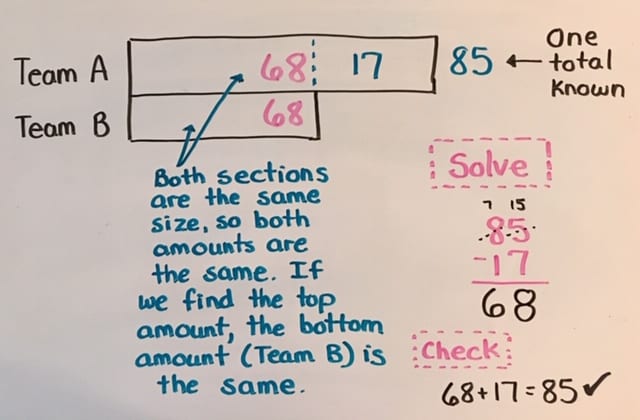 Team A 68 17 85 ← One total known
Team B 68
Both sections
are the same
size, so both
amounts are
the same. If
we find the top
amount, the bottom
amount (Team B) is
the same.
Solve
7 15
85
-17
68
Check
68+17=85✓